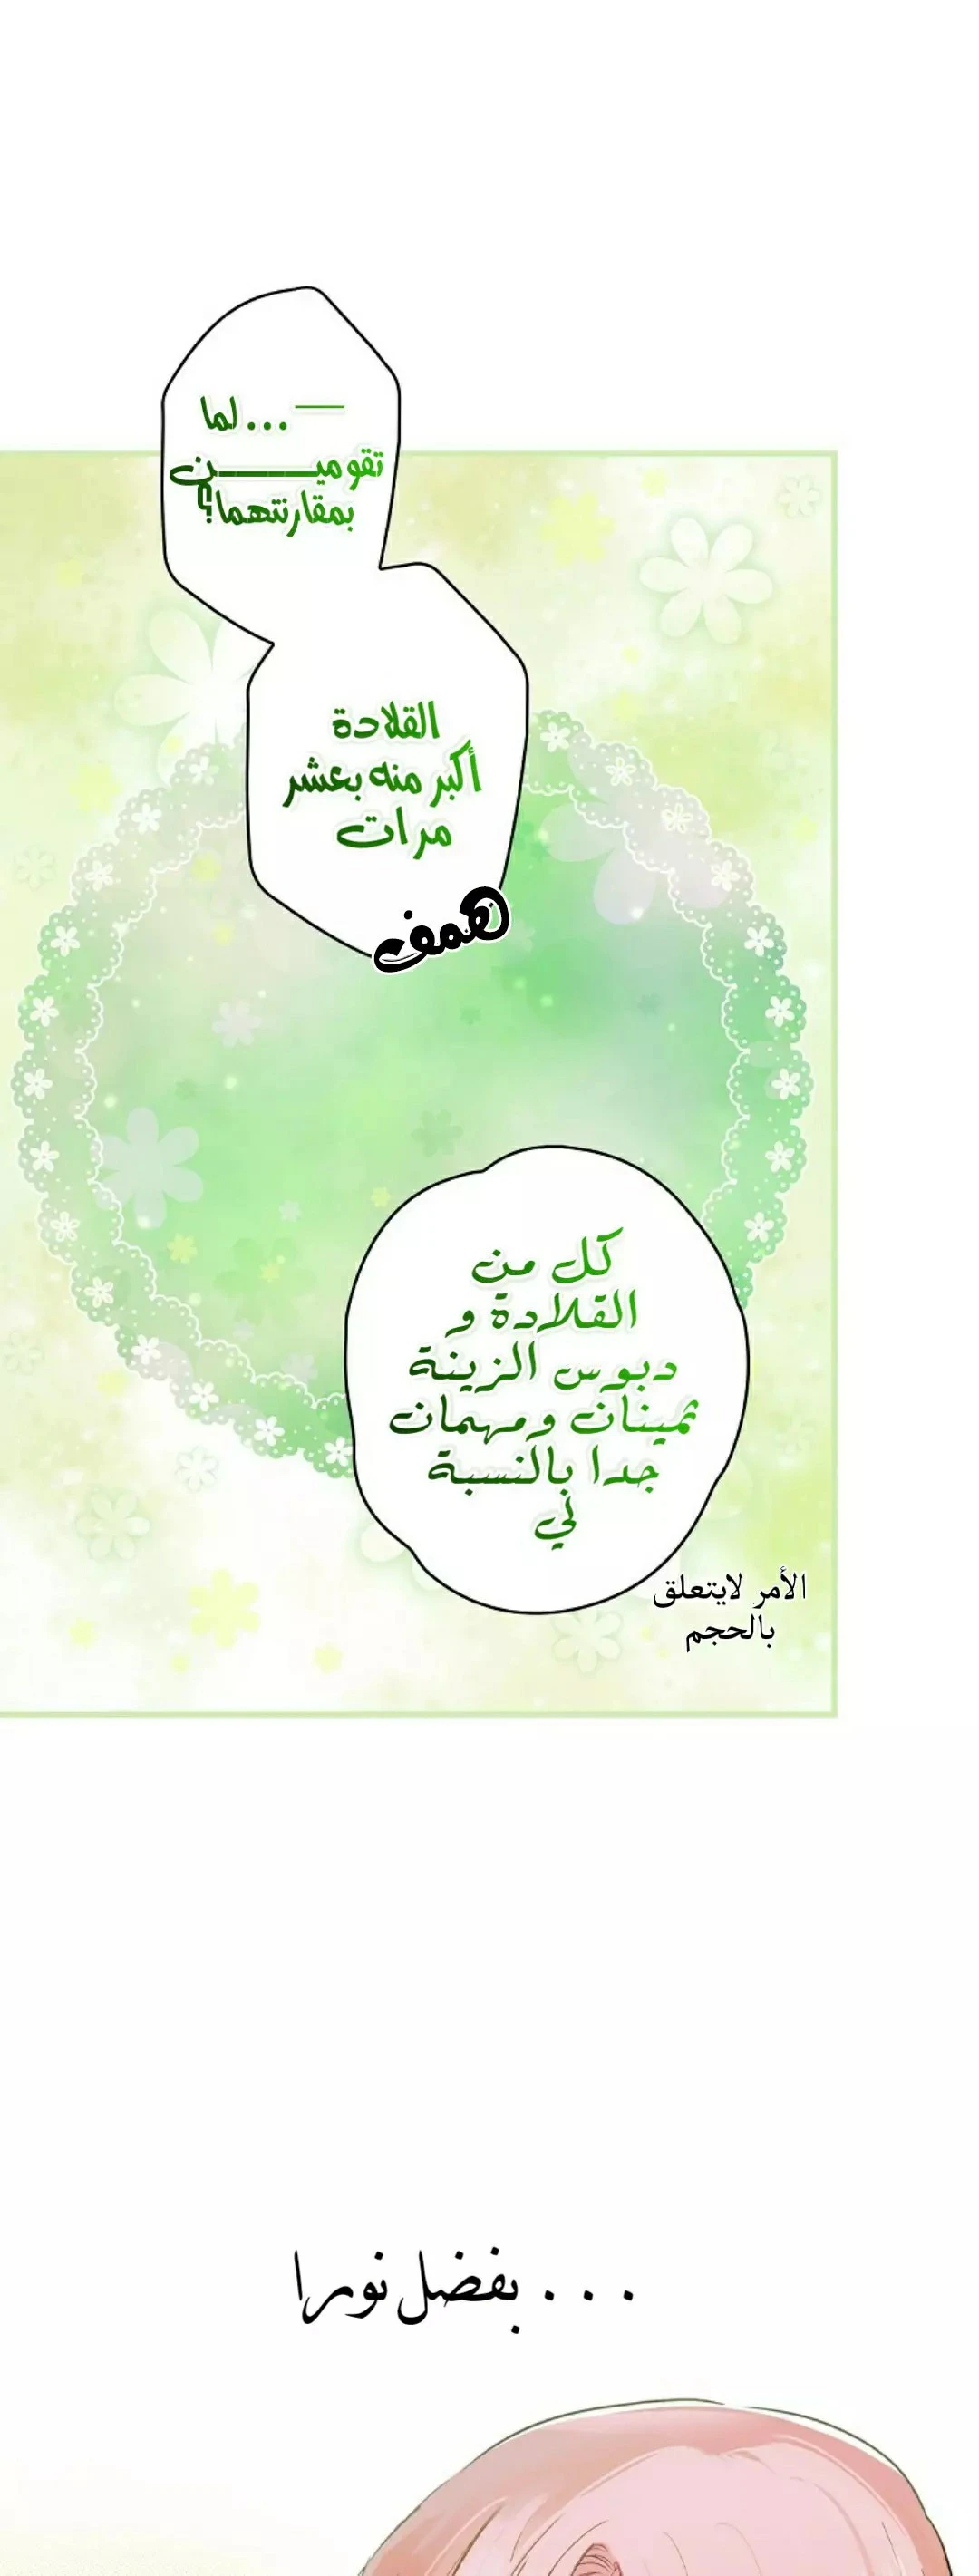 — ... لما
تقوميـــــن
بمقارنتهما؟
القلادة
أكبر منه بعشر
مرات
همف
كل من
القلادة و
دبوس الزينة
ثمينان ومهمان
جدا بالنسبة
لي
الأمر لايتعلق
بالحجم
... بفضل نورا